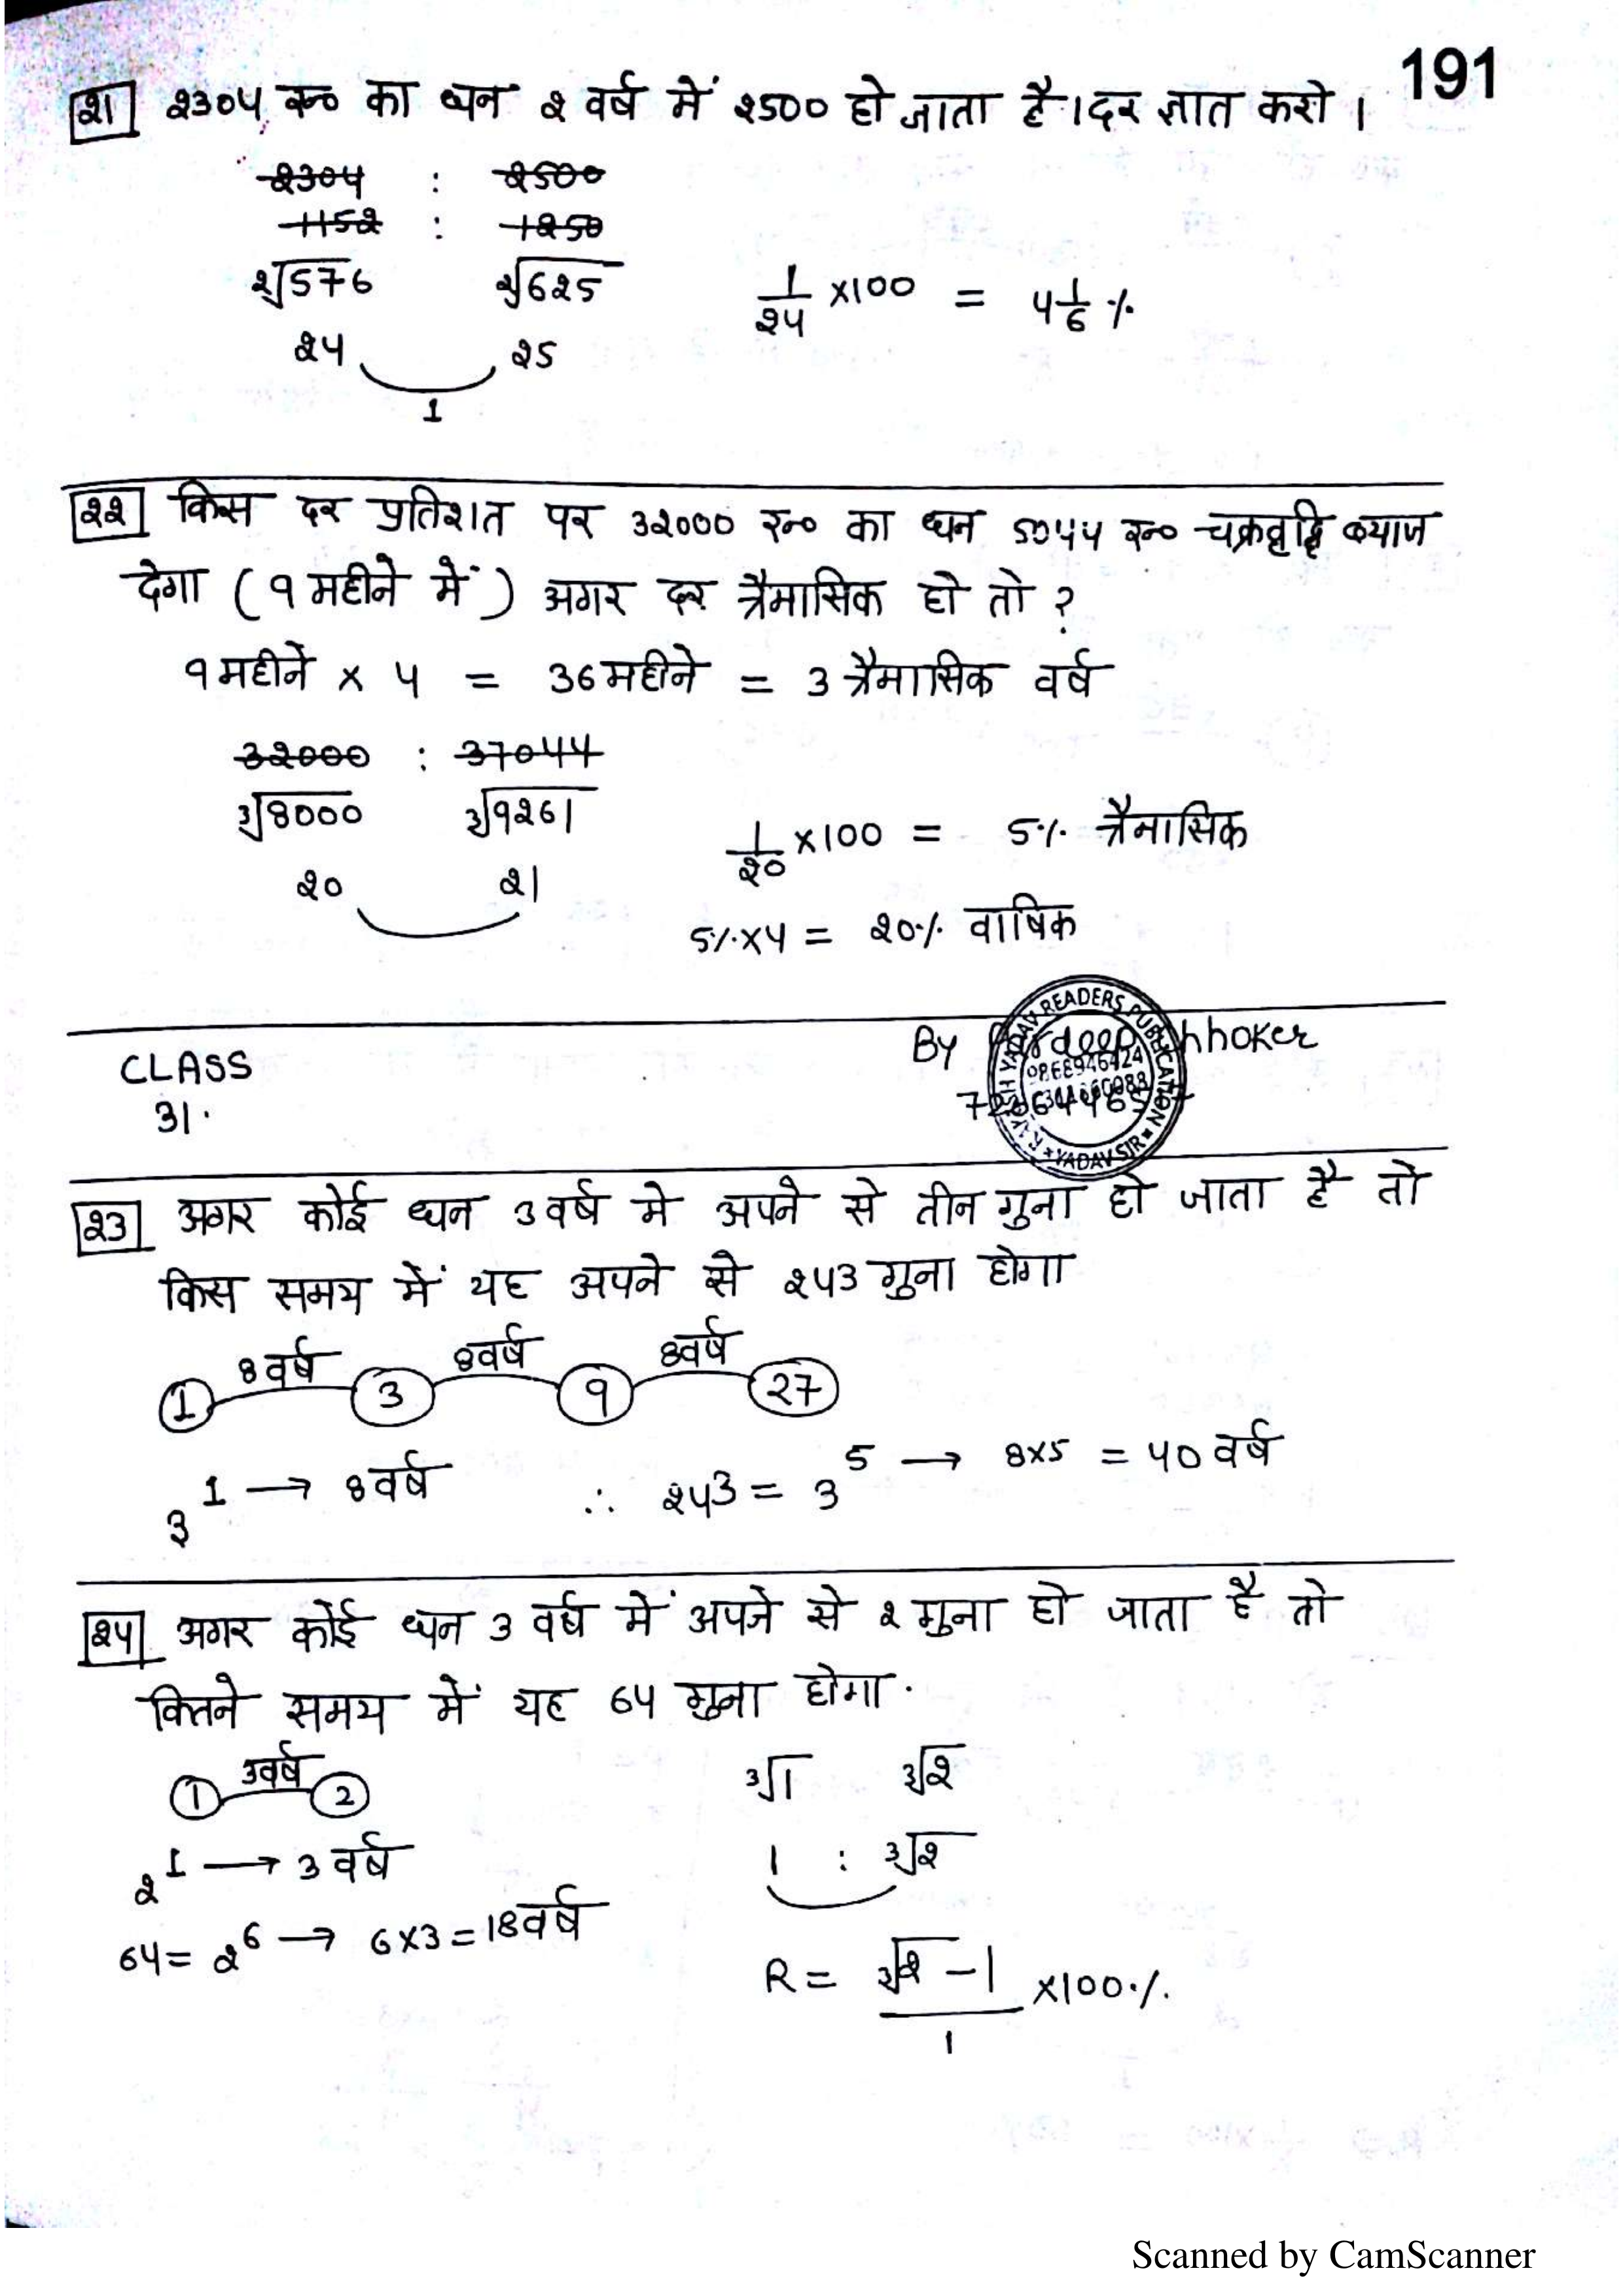 191
21 2304 रु० का धन 2 वर्ष में 2500 हो जाता है। दर ज्ञात करो।
2304 : 2500
1152 : 1250
2√576 2√625
1/24 ×100 = 4 1/6 %
24 25
1
22 किस दर प्रतिशत पर 32000 रु० का धन 5044 रु० चक्रवृद्धि ब्याज
देगा (9 महीने में) अगर दर त्रैमासिक हो तो ?
9 महीने × 4 = 36 महीने = 3 त्रैमासिक वर्ष
32000 : 37044
3√8000 3√9261
1/20 ×100 = 5% त्रैमासिक
20 21
5% ×4 = 20% वार्षिक
CLASS
31.
By Pardeep Chhoker
READERS PUBLICATION
YADAV SIR
23 अगर कोई धन 3 वर्ष में अपने से तीन गुना हो जाता है तो
किस समय में यह अपने से 243 गुना होगा
8 वर्ष 8 वर्ष 8 वर्ष
1 3 9 27
3^1 → 8 वर्ष ∴ 243 = 3^5 → 8×5 = 40 वर्ष
24 अगर कोई धन 3 वर्ष में अपने से 2 गुना हो जाता है तो
कितने समय में यह 64 गुना होगा.
3 वर्ष
1 2
3√1 3√2
2^1 → 3 वर्ष
1 : 3√2
64 = 2^6 → 6×3 = 18 वर्ष
R = (3√2 - 1)/1 ×100%
Scanned by CamScanner